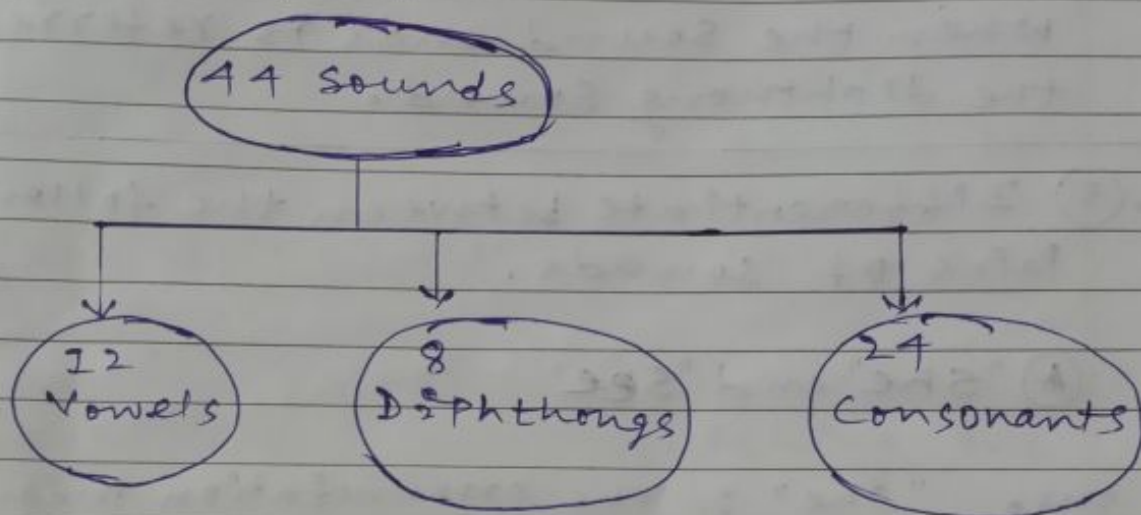 44 Sounds
12
Vowels
8
Diphthongs
24
Consonants